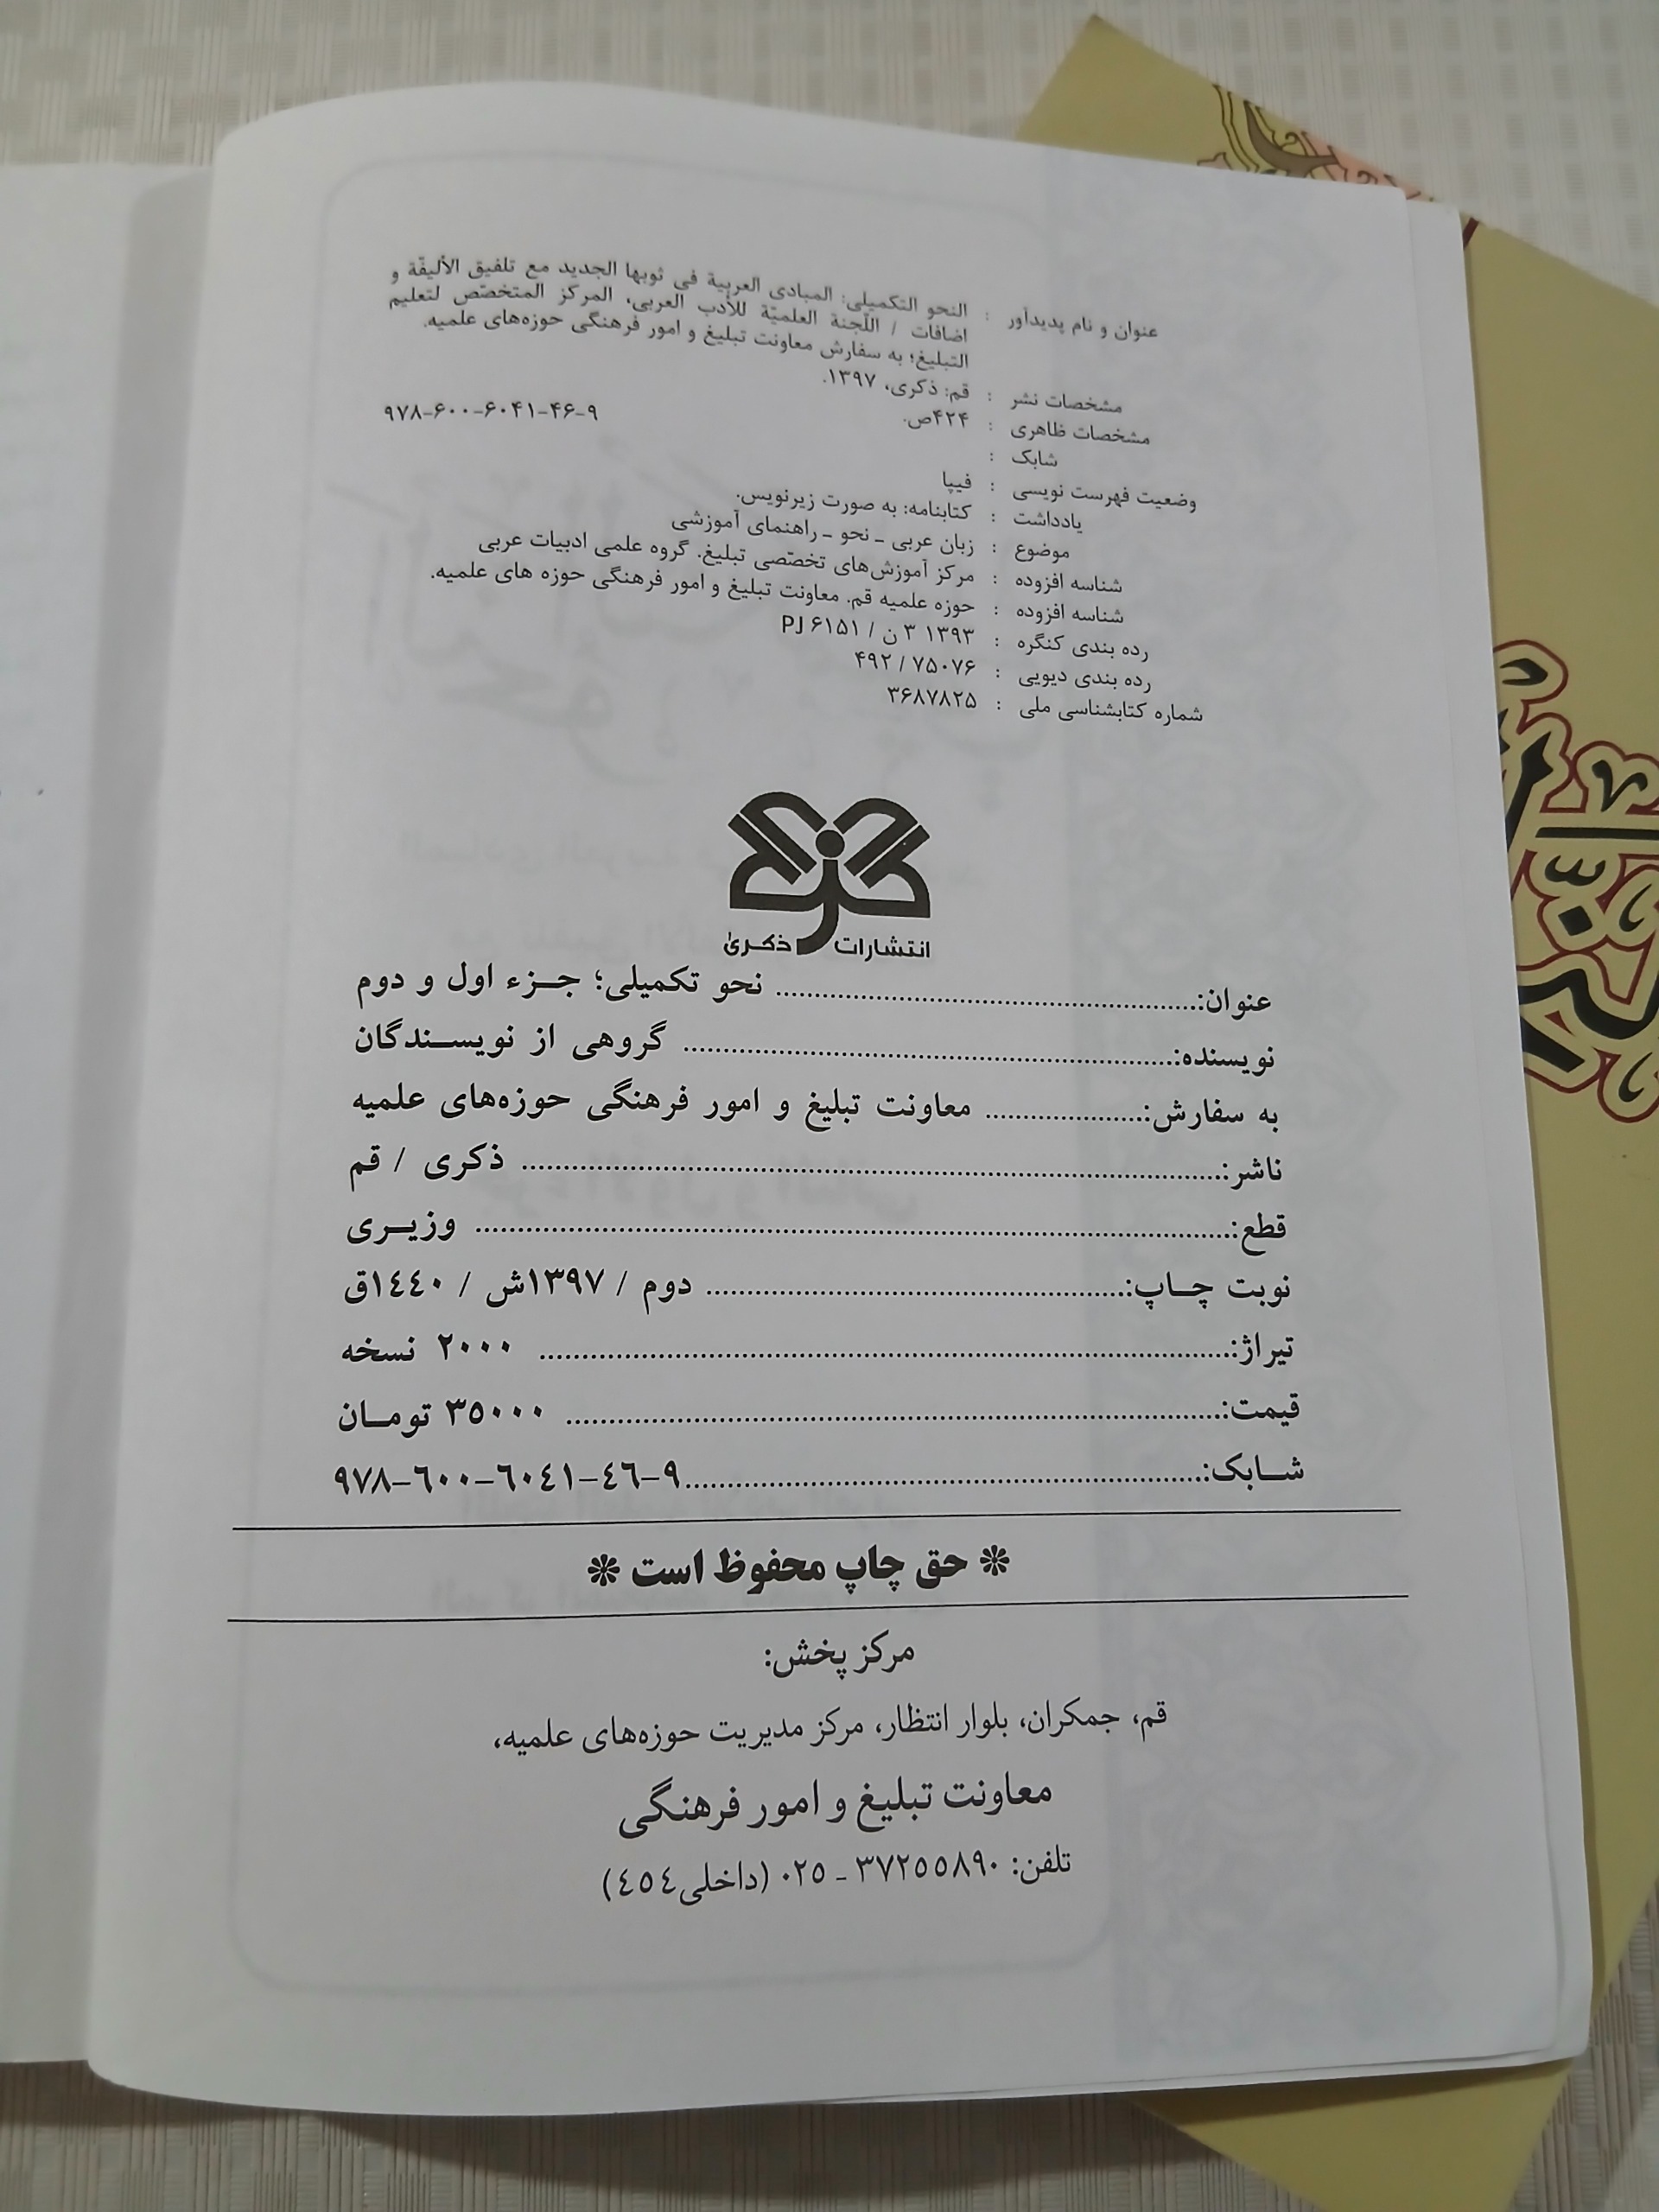 عنوان و نام پدیدآور : النحو التکمیلی: المبادی العربیة فی ثوبها الجدید مع تلفیق الألیفّة و
اضافات / اللّجنة العلمیّة للأدب العربی، المرکز المتخصّص لتعلیم
التبلیغ؛ به سفارش معاونت تبلیغ و امور فرهنگی حوزه‌های علمیه.
مشخصات نشر : قم: ذکری، ۱۳۹۷.
مشخصات ظاهری : ۴۲۴ص.
شابک : ۹۷۸-۶۰۰-۶۰۴۱-۴۶-۹
وضعیت فهرست نویسی : فیپا
یادداشت : کتابنامه: به صورت زیرنویس.
موضوع : زبان عربی ـ نحو ـ راهنمای آموزشی
شناسه افزوده : مرکز آموزش‌های تخصّصی تبلیغ. گروه علمی ادبیات عربی
شناسه افزوده : حوزه علمیه قم. معاونت تبلیغ و امور فرهنگی حوزه های علمیه.
رده بندی کنگره : ۱۳۹۳ ۳ ن / PJ ۶۱۵۱
رده بندی دیویی : ۴۹۲ / ۷۵۰۷۶
شماره کتابشناسی ملی : ۳۶۸۷۸۲۵
انتشارات ذکریٰ
عنوان:........ نحو تکمیلی؛ جـزء اول و دوم
نویسنده:........ گروهی از نویسـندگان
به سفارش:........ معاونت تبلیغ و امور فرهنگی حوزه‌های علمیه
ناشر:........ ذکری / قم
قطع:........ وزیـری
نوبت چـاپ:........ دوم / ۱۳۹۷ش / ۱٤٤۰ق
تیراژ:........ ۲۰۰۰ نسخه
قیمت:........ ۳۵۰۰۰ تومـان
شـابک:........ ۹۷۸-٦۰۰-٦۰٤۱-٤٦-۹
❊ حق چاپ محفوظ است ❊
مرکز پخش:
قم، جمکران، بلوار انتظار، مرکز مدیریت حوزه‌های علمیه،
معاونت تبلیغ و امور فرهنگی
تلفن: ۳۷۲۵۵۸۹۰ ـ ۰۲۵ (داخلی٤٥٤)